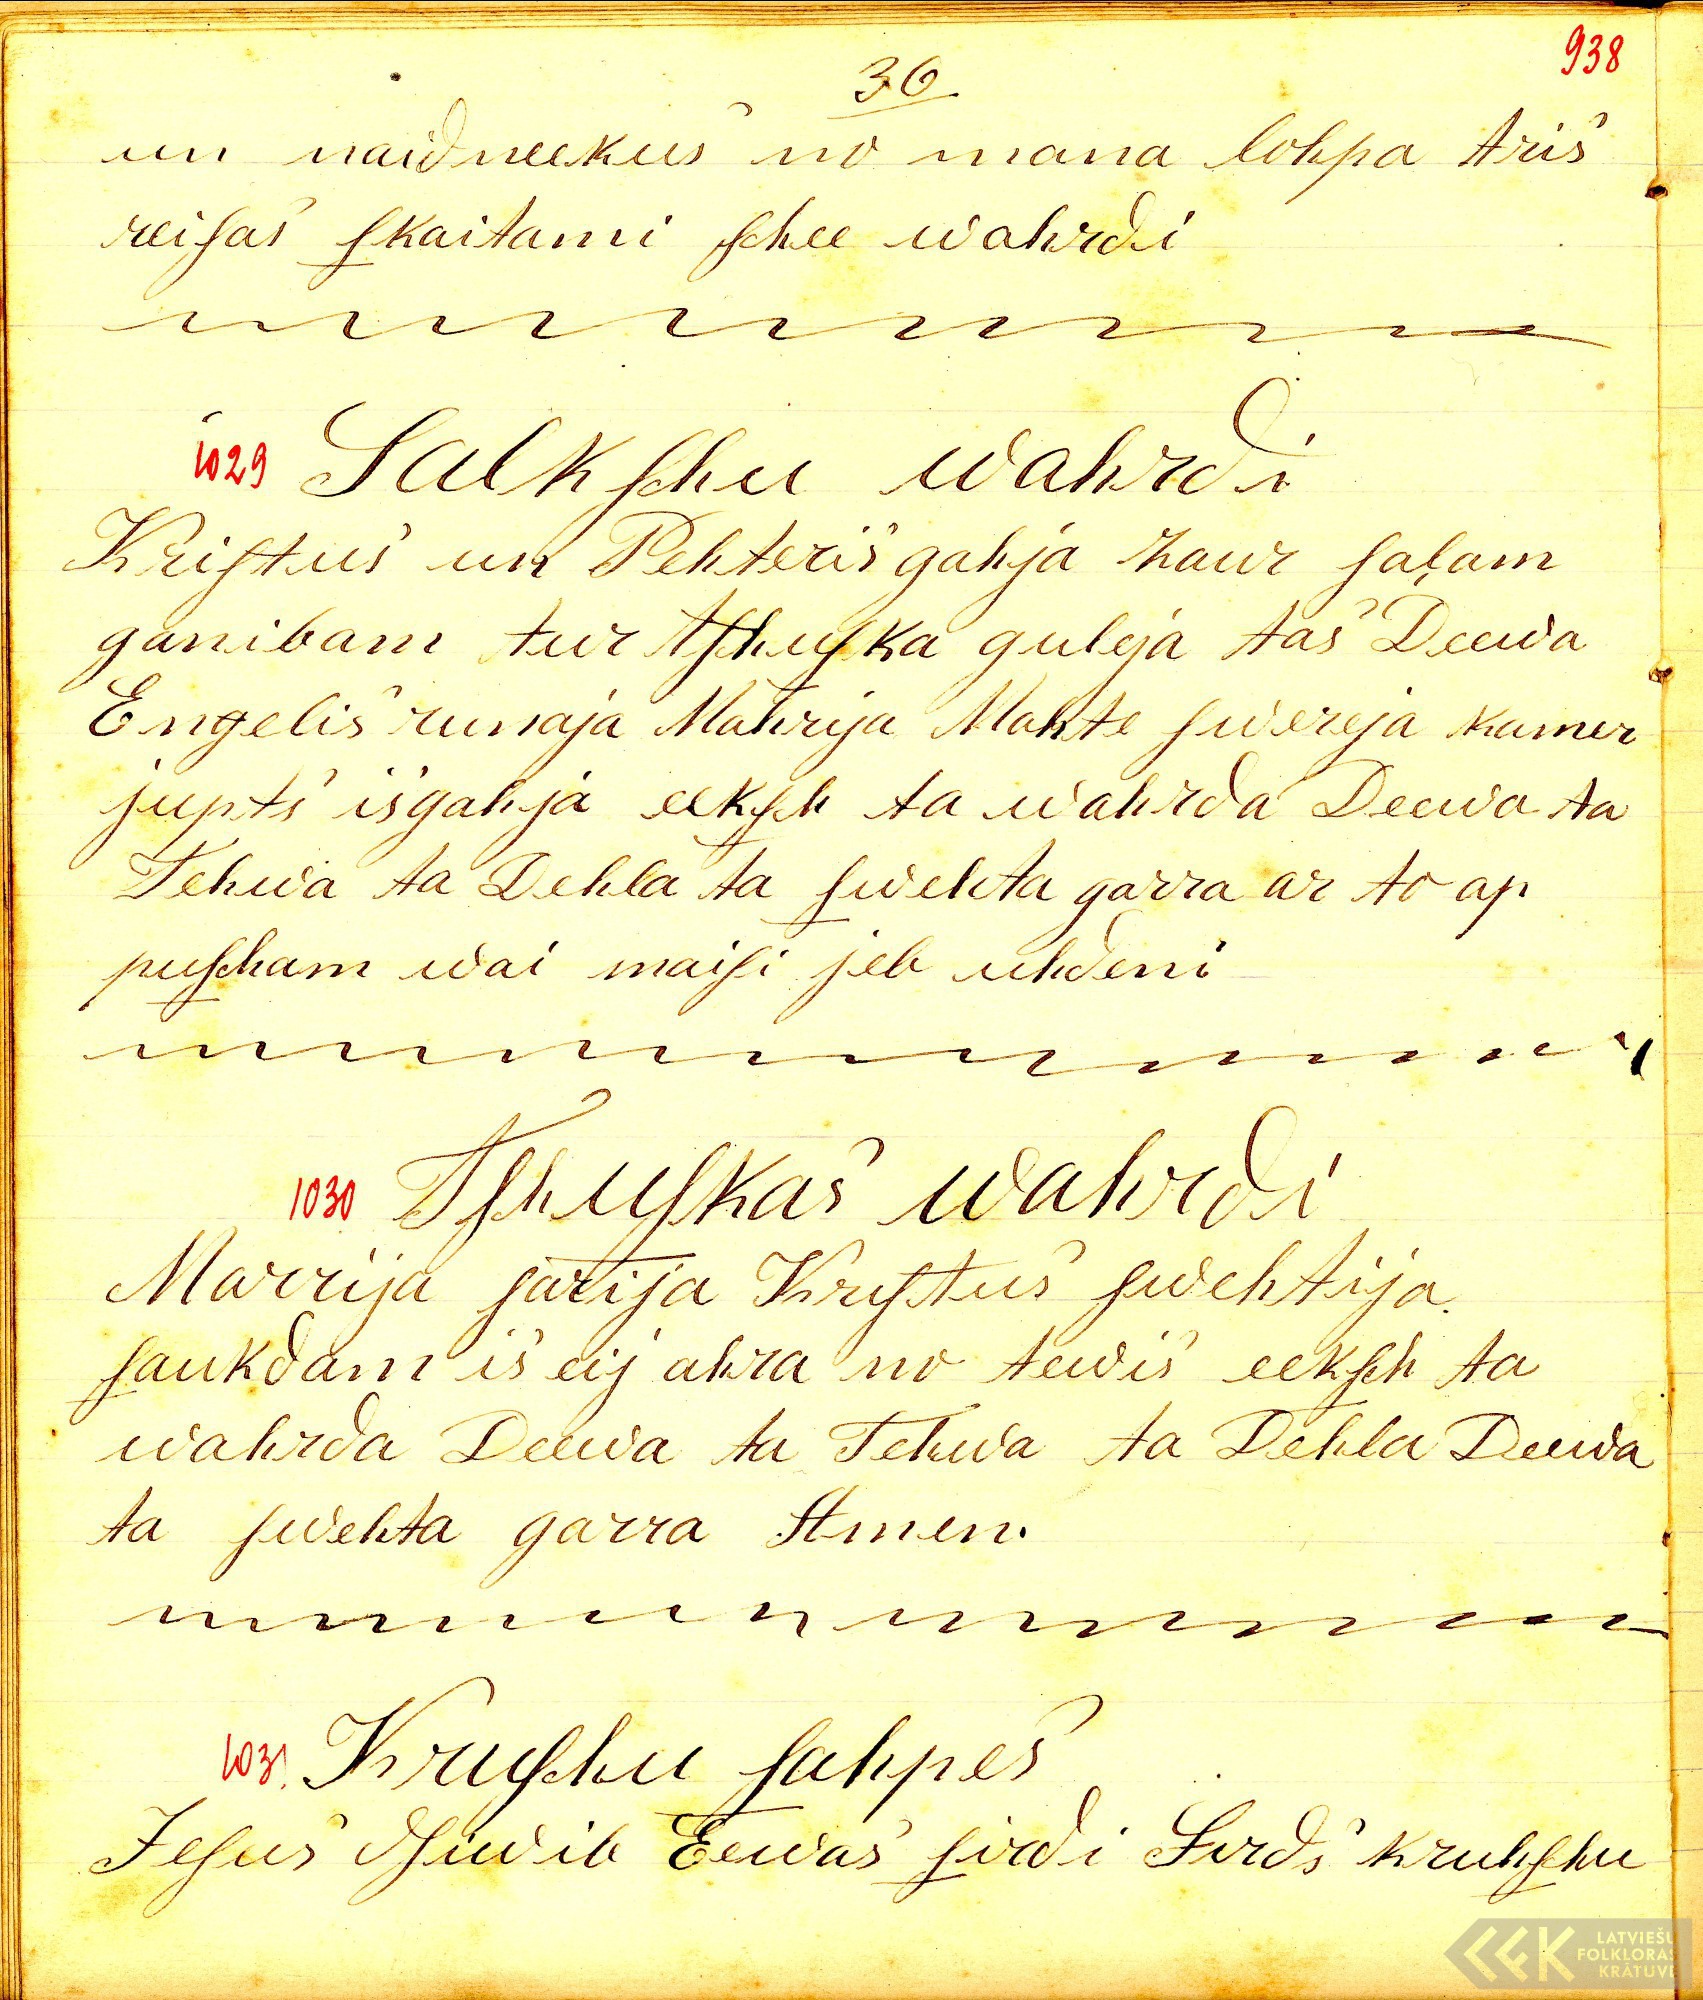 938
36
un naidneekus no mana lohpa tris
reiſas ſkaitami ſchee wahrdi
1029 Salkſchu wahrdi
Kriſtus un Pehteris gahja zaur ſaļam
ganibam tur tſchuſka guleja tas Deewa
Engelis runaja Mahrija Mahte ſwereja kamer
jupts isgahja eekſch ta wahrda Deewa ta
Tehwa ta Dehla ta ſwehta garra ar to ap
puſcham wai maiſi jeb uhdeni
1030 Tſchuſkas wahrdi
Marrija ſazija Kruſtus ſwehtija
ſaukdam is eij ahra no tewis eekſch ta
wahrda Deewa ta Tehwa ta Dehla Deewa
ta ſwehta garra Amen.
1031 Kruſchu ſahpes
Jeſus dſiwib Eewas ſirdi Sirds kruhſchu
LATVIEŠU
FOLKLORAS
KRĀTUVE